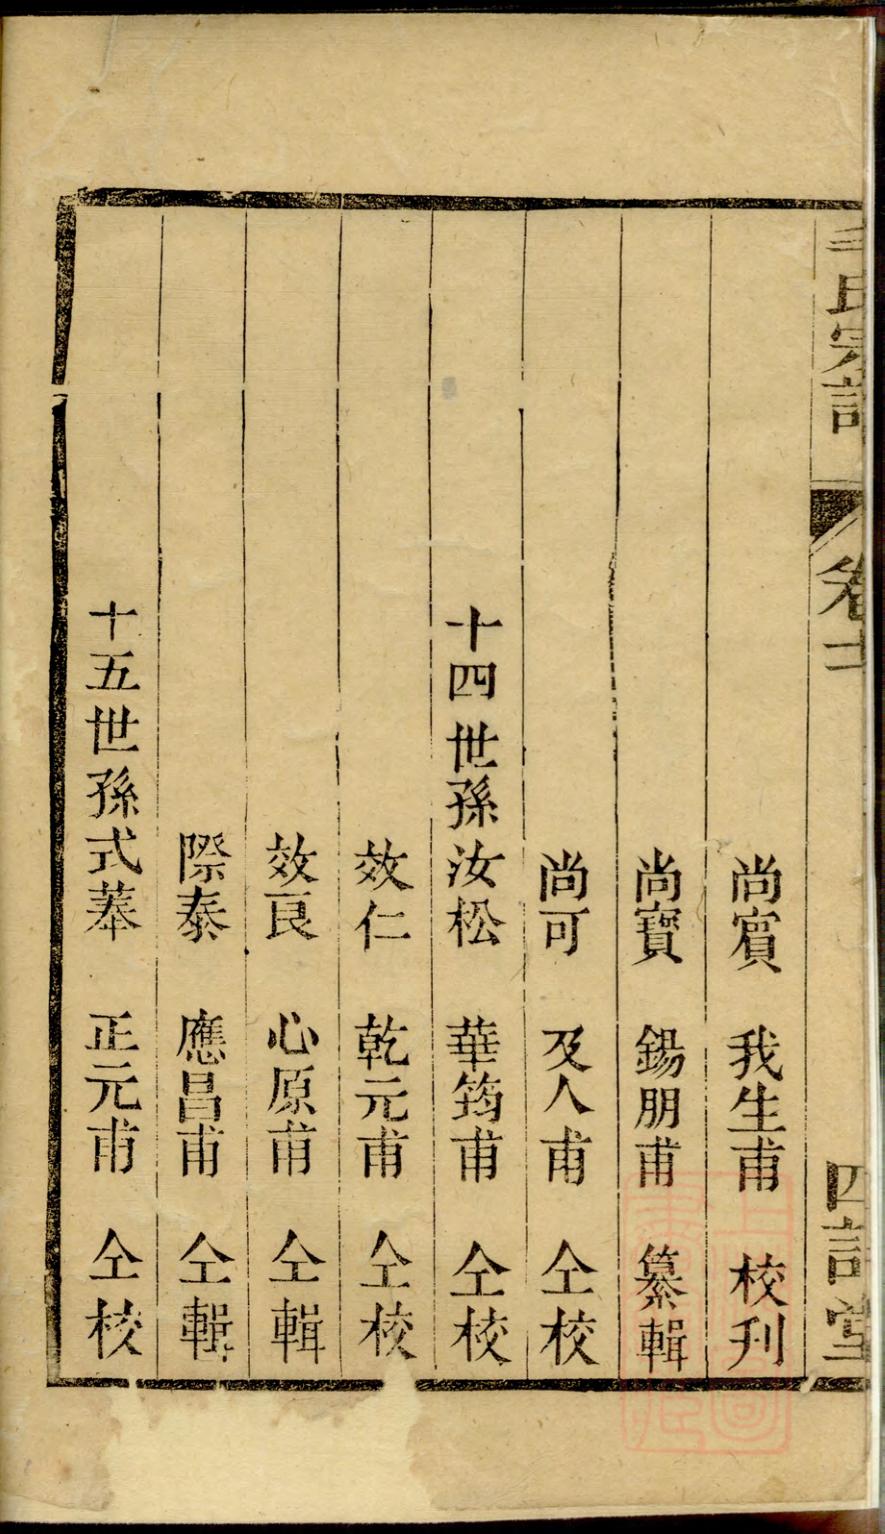 氏宗譜 卷十
四詔堂
尚賓 我生甫 校刋
尚寶 錫朋甫 纂輯
尚可 及人甫 仝校
十四世孫汝松 華筠甫 仝校
效仁 乾元甫 仝校
效良 心原甫 仝輯
際泰 應昌甫 仝輯
十五世孫式莑 正元甫 仝校